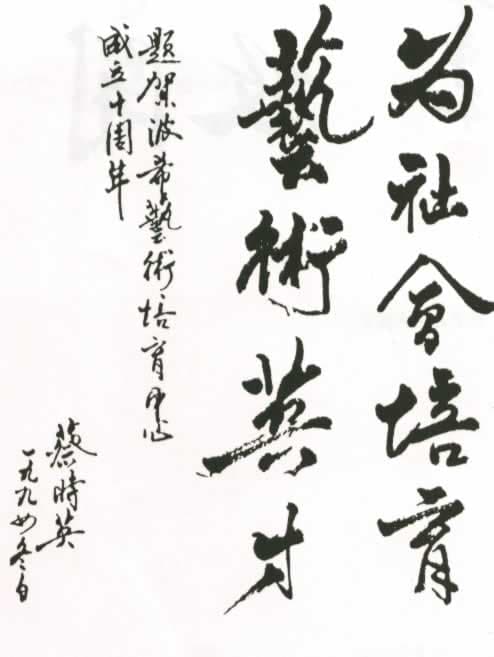 为社會培育
藝術英才
题架波希藝術培育中心
成立十周年
蔡時英
一九九四冬日